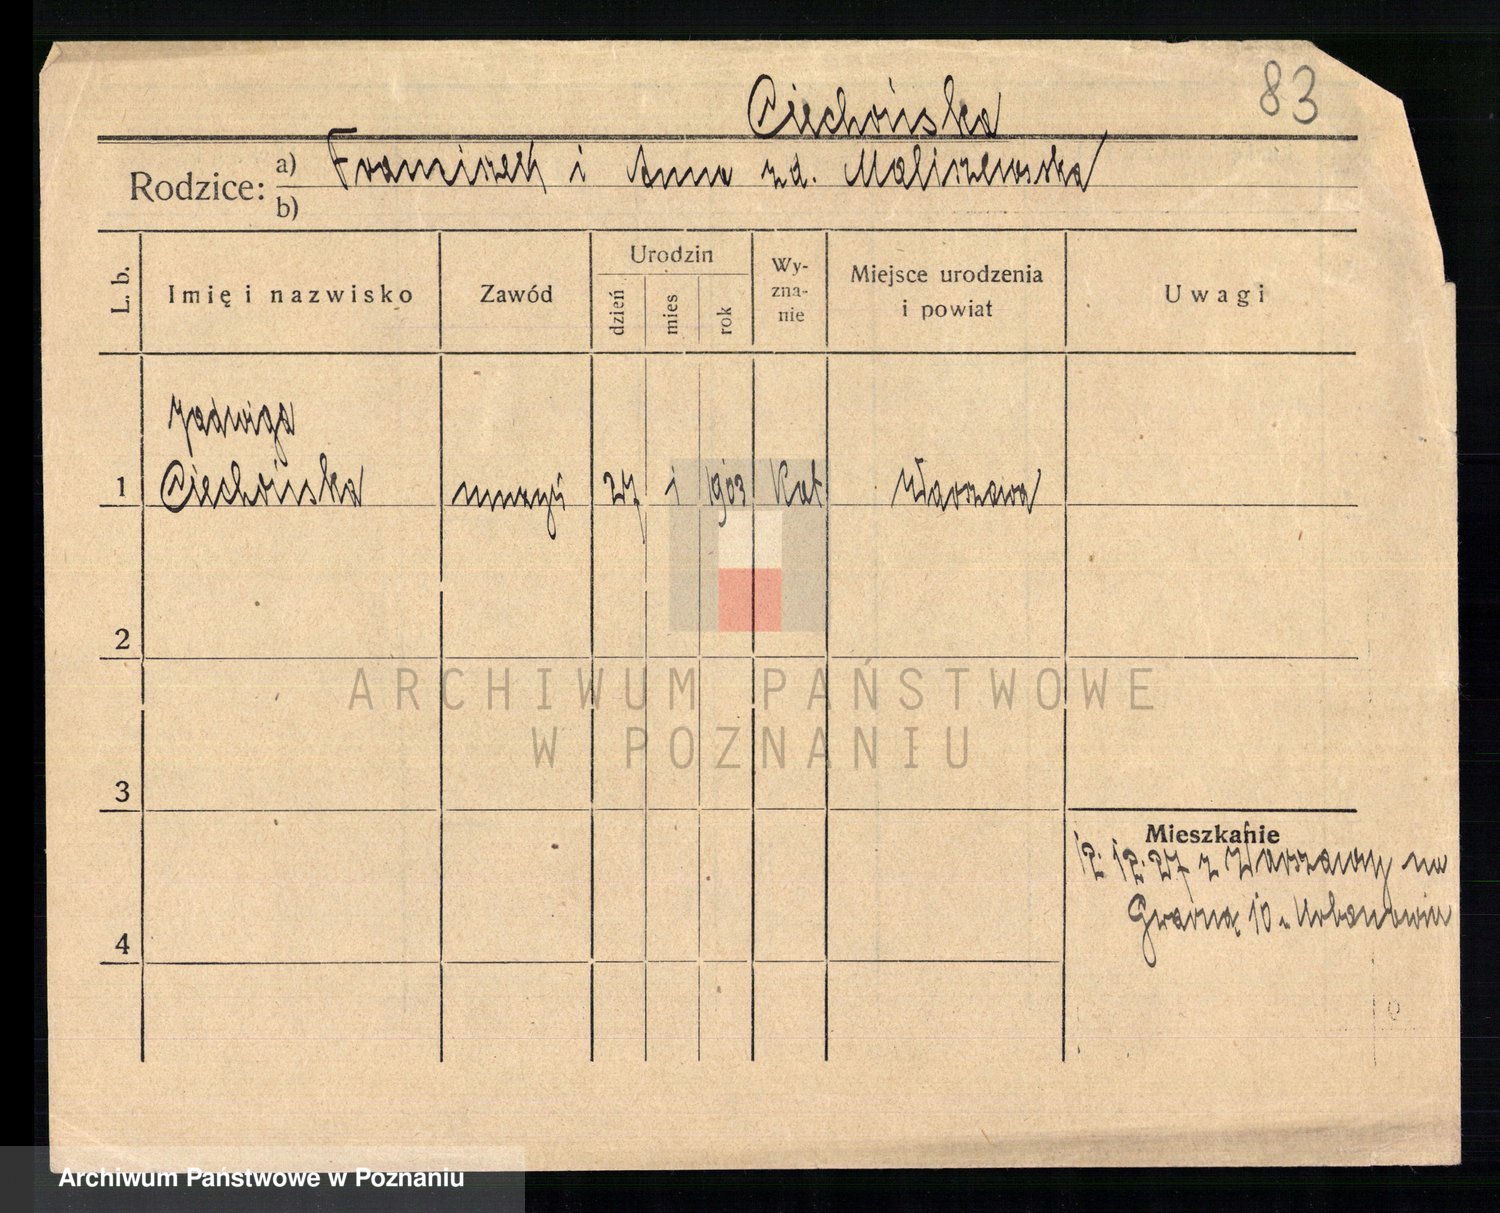 83
Ciechońska
Rodzice: a) Franciszek i Anna zd. Maliszewska
b)
L. b.
Imię i nazwisko
Zawód
Urodzin
dzień
mies
rok
Wy-
zna-
nie
Miejsce urodzenia
i powiat
Uwagi
Jadwiga
1 Ciechońska 27 1 1903 Kat Warszawa
2
3
4
Mieszkanie
12. 12. 27 z Warszawy na
10
ARCHIWUM PAŃSTWOWE
W POZNANIU
Archiwum Państwowe w Poznaniu